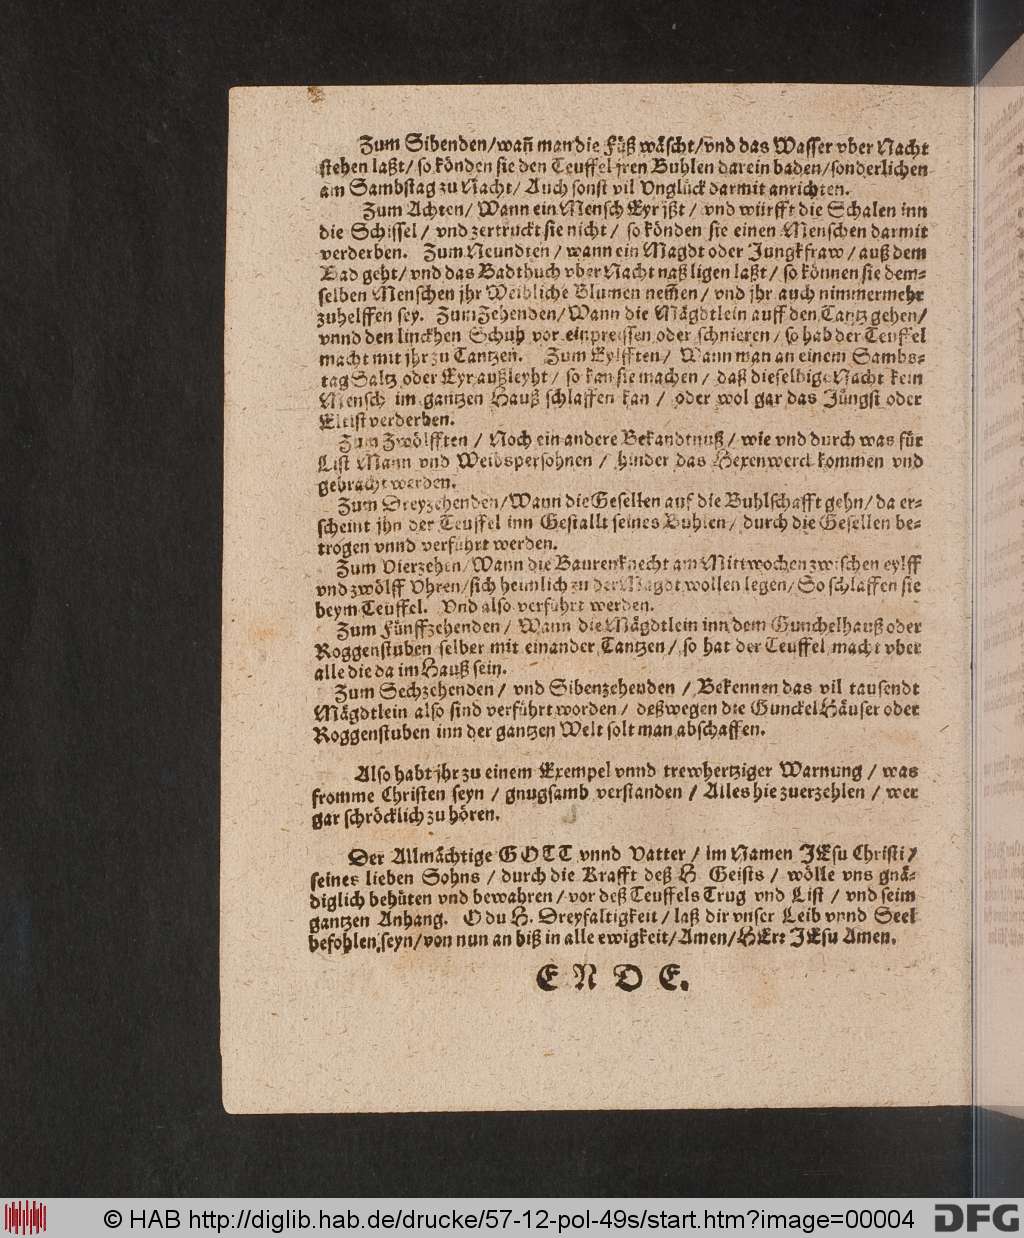 Zum Sibenden/wañ man die Füß wäscht/vnd das Wasser vber Nacht
stehen laßt/ so könden sie den Teuffel jren Buhlen darein baden/sonderlichen
am Sambstag zu Nacht/ Auch sonst vil Vnglück darmit anrichten.
Zum Achten/ Wann ein Mensch Eyr jßt/ vnd würfft die Schalen inn
die Schissel/ vnd zertruckt sie nicht/ so könden sie einen Menschen darmit
verderben. Zum Neundten/ wann ein Magdt oder Jungkfraw/ auß dem
Bad geht/ vnd das Badthuch vber Nacht naß ligen laßt/ so können sie dem⸗
selben Menschen jhr Weibliche Blumen nem̃en/ vnd jhr auch nimmermehr
zuhelffen sey. Zum Zehenden/ Wann die Mägdtlein auff den Tantz gehen/
vnnd den linckhen Schuh vor einpreissen oder schnieren/ so hab der Teuffel
macht mit jhr zu Tantzen. Zum Eylfften/ Wann man an einem Sambs⸗
tag Saltz oder Eyr außleyht/ so kan sie machen/ daß dieselbige Nacht kein
Mensch im gantzen Hauß schlaffen kan/ oder wol gar das Jüngst oder
Eltist verderben.
Zum Zwölfften/ Noch ein andere Bekandtnuß/ wie vnd durch was für
List Mann vnd Weibspersohnen/ hinder das Hexenwerck kommen vnd
gebracht werden.
Zum Dreyzehenden/Wann die Gesellen auf die Buhlschafft gehn/ da er⸗
scheint jhn der Teuffel inn Gestallt seines Buhlen/ durch die Gesellen be⸗
trogen vnnd verführt werden.
Zum Vierzehen/Wann die Baurenknecht am Mittwochen zwischen eylff
vnd zwölff Vhren/sich heimlich zu der Magdt wollen legen/ So schlaffen sie
beym Teuffel. Vnd also verführt werden.
Zum Fünffzehenden/ Wann die Mägdtlein inn dem Gunckelhauß oder
Roggenstuben selber mit einander Tantzen/ so hat der Teuffel macht vber
alle die da im Hauß sein.
Zum Sechzehenden/ vnd Sibenzehenden/ Bekennen das vil tausendt
Mägdtlein also sind verführt worden/ deßwegen die Gunckel Häuser oder
Roggenstuben inn der gantzen Welt solt man abschaffen.
Also habt jhr zu einem Exempel vnnd trewhertziger Warnung/ was
fromme Christen seyn/ gnugsamb verstanden/ Alles hie zuerzehlen/ wer
gar schröcklich zu hören.
Der Allmächtige GOTT vnnd Vatter/ im Namen JEsu Christi/
seines lieben Sohns/ durch die Krafft deß H. Geists/ wölle vns gnä⸗
diglich behüten vnd bewahren/ vor deß Teuffels Trug vnd List/ vnd seim
gantzen Anhang. O du H. Dreyfaltigkeit/ laß dir vnser Leib vnnd Seel
befohlen seyn/von nun an biß in alle ewigkeit/Amen/HErr JEsu Amen.
E N D E.
© HAB http://diglib.hab.de/drucke/57-12-pol-49s/start.htm?image=00004
DFG